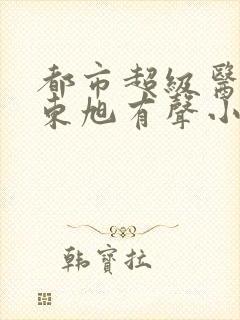 都市超級醫
東旭有聲小
韩寶拉